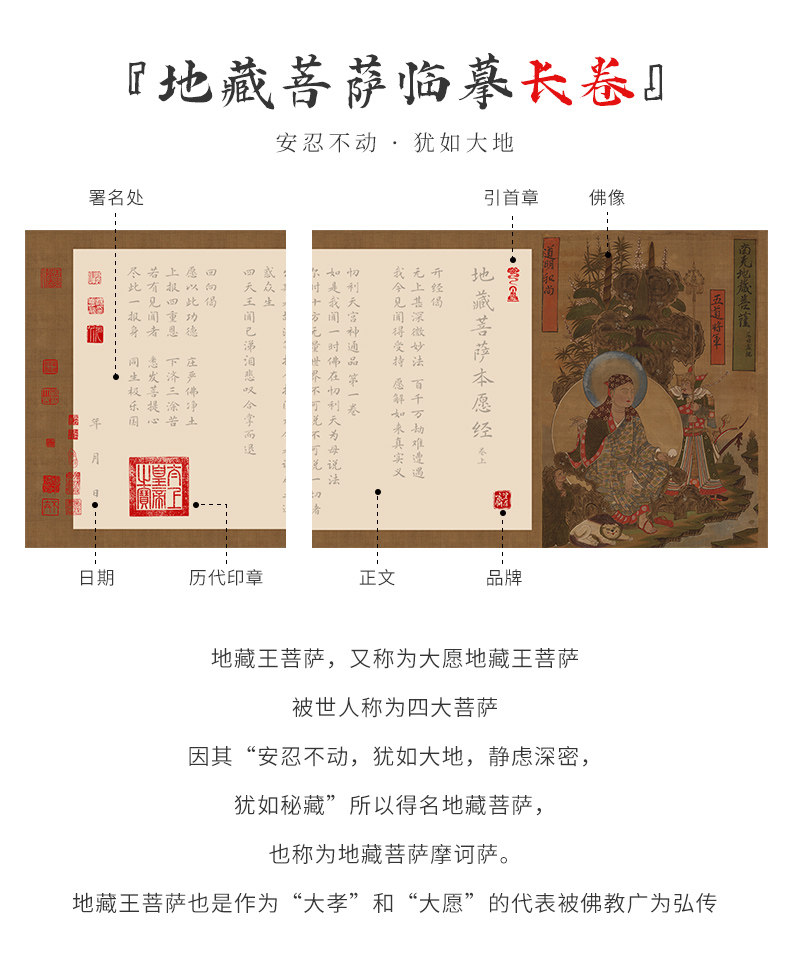 『地藏菩萨临摹长卷』
安忍不动 · 犹如大地
署名处
引首章
佛像
南无地藏菩萨
五道将军
道明和尚
地藏菩萨本愿经
卷上
开经偈
无上甚深微妙法 百千万劫难遭遇
我今见闻得受持 愿解如来真实义
忉利天宫神通品 第一卷
如是我闻一时佛在忉利天为母说法
尔时十方无量世界不可说不可说一切诸
惑众生
四天王闻已涕泪悲叹合掌而退
回向偈
愿以此功德 庄严佛净土
上报四重恩 下济三涂苦
若有见闻者 悉发菩提心
尽此一报身 同生极乐国
年
月
日
日期
历代印章
正文
品牌
地藏王菩萨，又称为大愿地藏王菩萨
被世人称为四大菩萨
因其“安忍不动，犹如大地，静虑深密，
犹如秘藏”所以得名地藏菩萨，
也称为地藏菩萨摩诃萨。
地藏王菩萨也是作为“大孝”和“大愿”的代表被佛教广为弘传